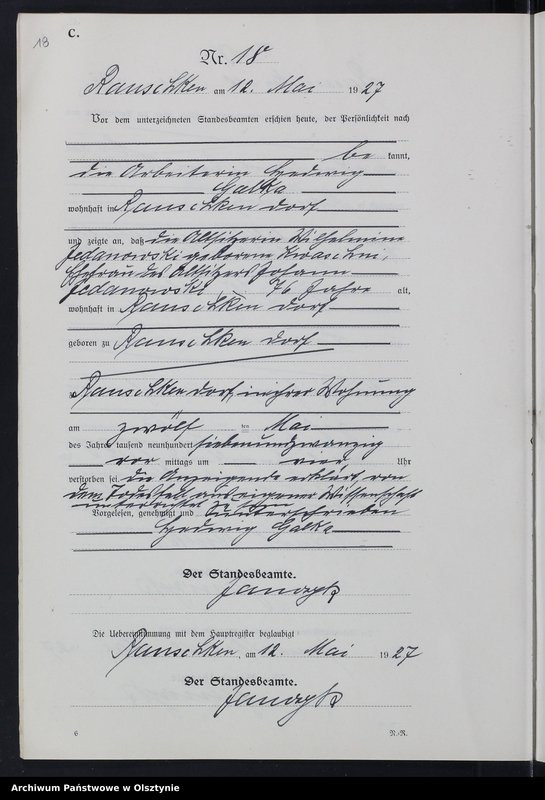 18
C.
Nr. 18
Rauschken am 12. Mai 1927
Vor dem unterzeichneten Standesbeamten erschien heute, der Persönlichkeit nach
be kannt,
die Arbeiterin Hedwig
Galka
wohnhaft in Rauschken dorf
und zeigte an, daß die Altsitzerin Wilhelmine
Jedanowski geborene
Ehefrau des Altsitzers Johann
Jedanowski 76 Jahre alt,
wohnhaft in Rauschken dorf
geboren zu Rauschken dorf
Rauschken dorf, in ihrer Wohnung
am zwölf ten Mai
des Jahres tausend neunhundert siebenundzwanzig
vor mittags um vier Uhr
verstorben sei. die Anzeigende erklärt, von
dem Todesfall aus eigener Wissenschaft
unterrichtet zu sein
Vorgelesen, genehmigt und unterschrieben
Hedwig Galka
Der Standesbeamte.
Die Uebereinstimmung mit dem Hauptregister beglaubigt
Rauschken, am 12. Mai 1927
Der Standesbeamte.
6
N.-R.
Archiwum Państwowe w Olsztynie